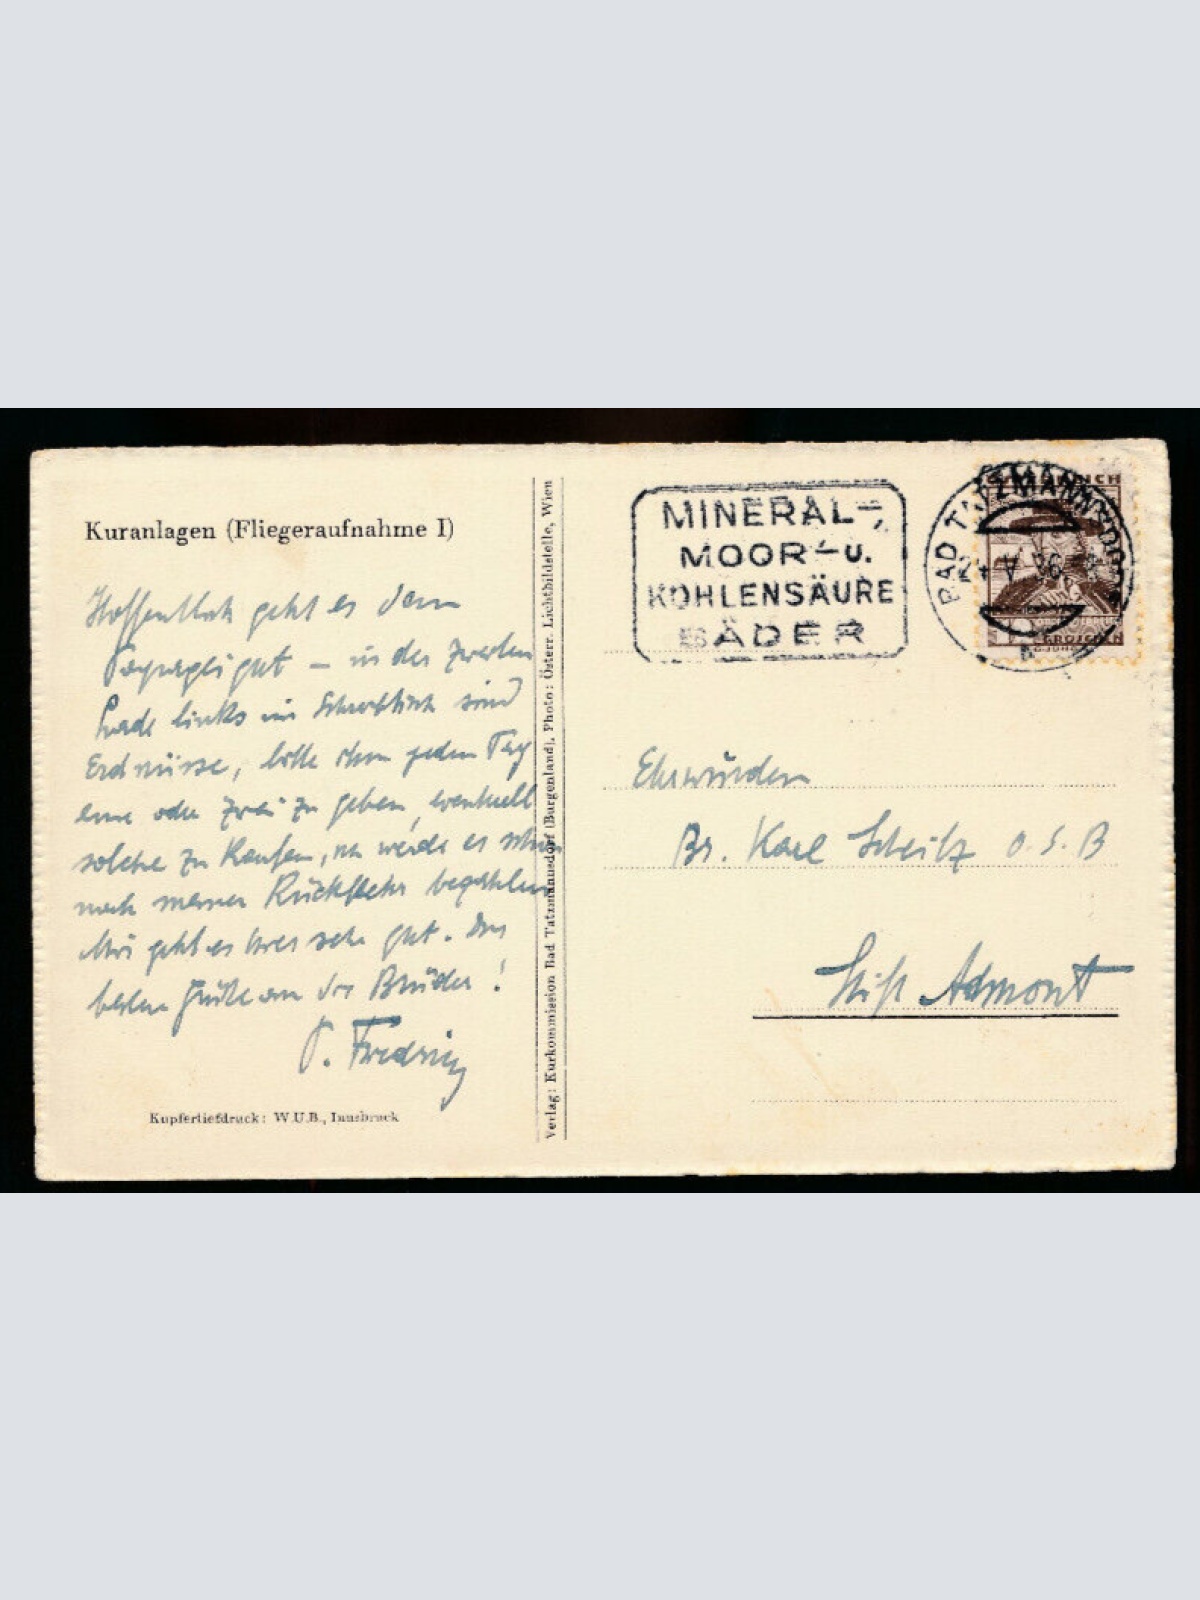 Kuranlagen (Fliegeraufnahme I)
Hoffentlich geht es dem
Papagei gut – in der zweiten
Lade links im Schreibtisch sind
Erdnüsse, bitte ihm jeden Tag
eine oder zwei zu geben, eventuell
solche zu kaufen, ich werde es schon
nach meiner Rückkehr bezahlen
Mir geht es hier sehr gut. Die
besten Grüße an die Brüder!
P.
Kupfertiefdruck: W.U.B., Innsbruck
Verlag: Kurkommission Bad Tatzmannsdorf (Burgenland), Photo: Österr. Lichtbildstelle, Wien
MINERAL-,
MOOR- u.
KOHLENSÄURE
BÄDER
BAD TATZMANNSDORF
GROSCHEN
Ehrwürden
Br. Karl O. S. B
Stift Admont